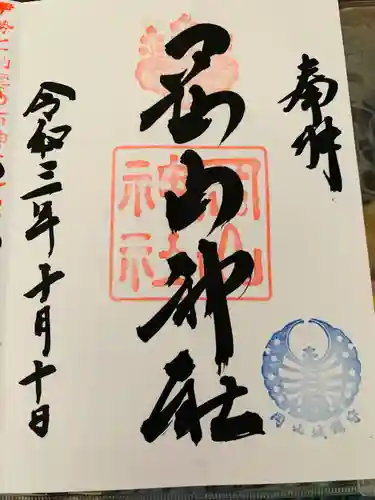 奉拝
岡山神社
岡山神社
令和三年十月十日